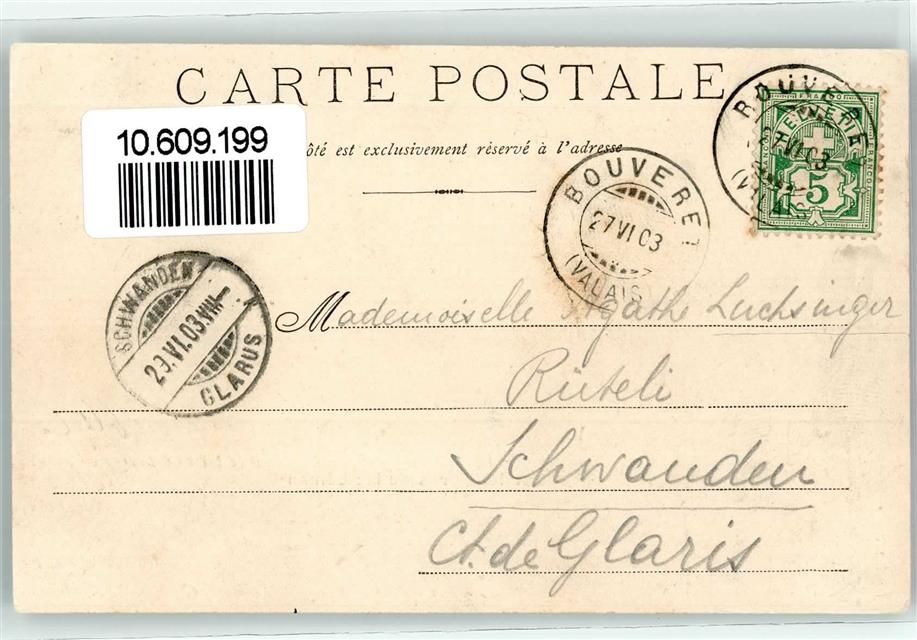 CARTE POSTALE
10.609.199
ôté est exclusivement réservé à l'adresse
BOUVERET
27 VI 03
(VALAIS)
FRANCO
HELVETIA
FRANCO
FRANCO
5
BOUVERET
27 VI 03
(VALAIS)
SCHWANDEN
29.VI.03.VIII-
GLARUS
Mademoiselle Agathe Luchsinger
Rüteli
Schwanden
Ct. de Glaris